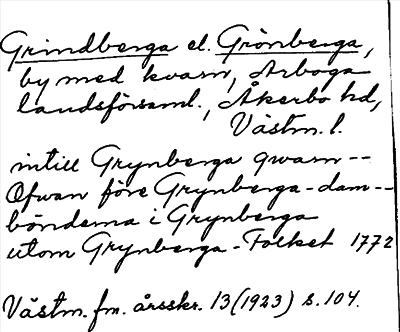 Grindberga el. Grönberga,
by med kvarn, Arboga
landsförsaml., Åkerbo hd,
Västm. l.
intill Grynberga qwarn --
Ofwan före Grynberga-dam--
bönderna i Grynberga
utom Grynberga-Folket 1772
Västm. fm. årsskr. 13 (1923) s. 104.